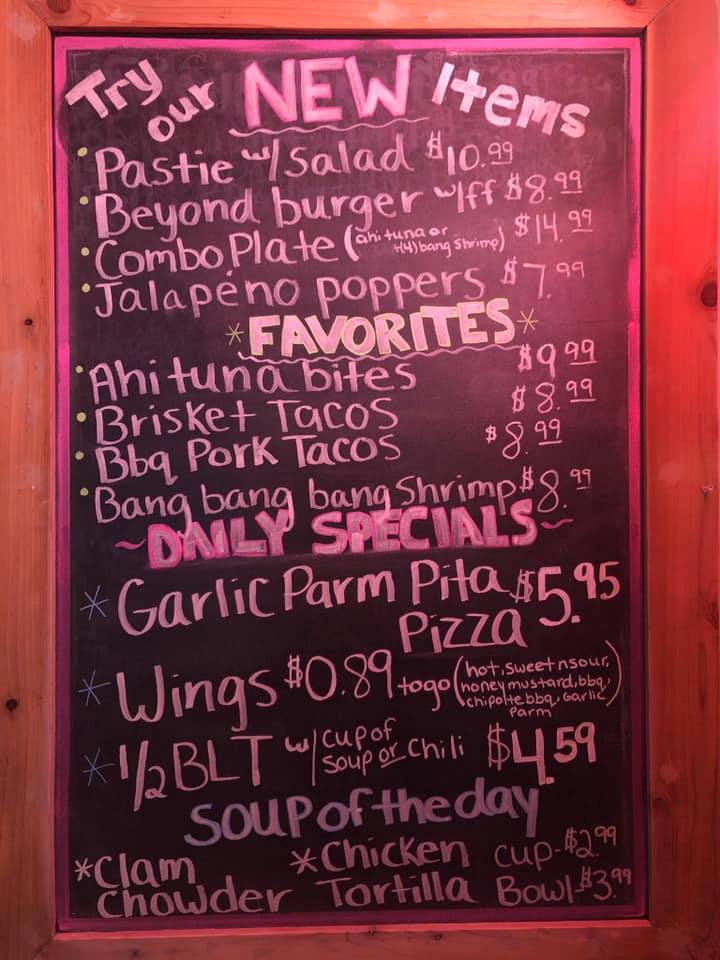 Try our NEW Items
• Pastie w/ Salad $10.99
• Beyond burger w/ff $8.99
• Combo Plate (ahi tuna or (4) bang shrimp) $14.99
• Jalapéno poppers $7.99
*FAVORITES*
• Ahi tuna bites $9.99
• Brisket Tacos $8.99
• Bbq Pork Tacos $8.99
• Bang bang bang Shrimp $8.99
~DAILY SPECIALS~
* Garlic Parm Pita $5.95
Pizza
* Wings $0.89 togo (hot, sweet n sour, honey mustard, bbq, chipolte bbq, Garlic Parm)
* 1/2 BLT w/ cup of soup or Chili $4.59
Soup of the day
*Clam *Chicken cup-$2.99
Chowder Tortilla Bowl-$3.99